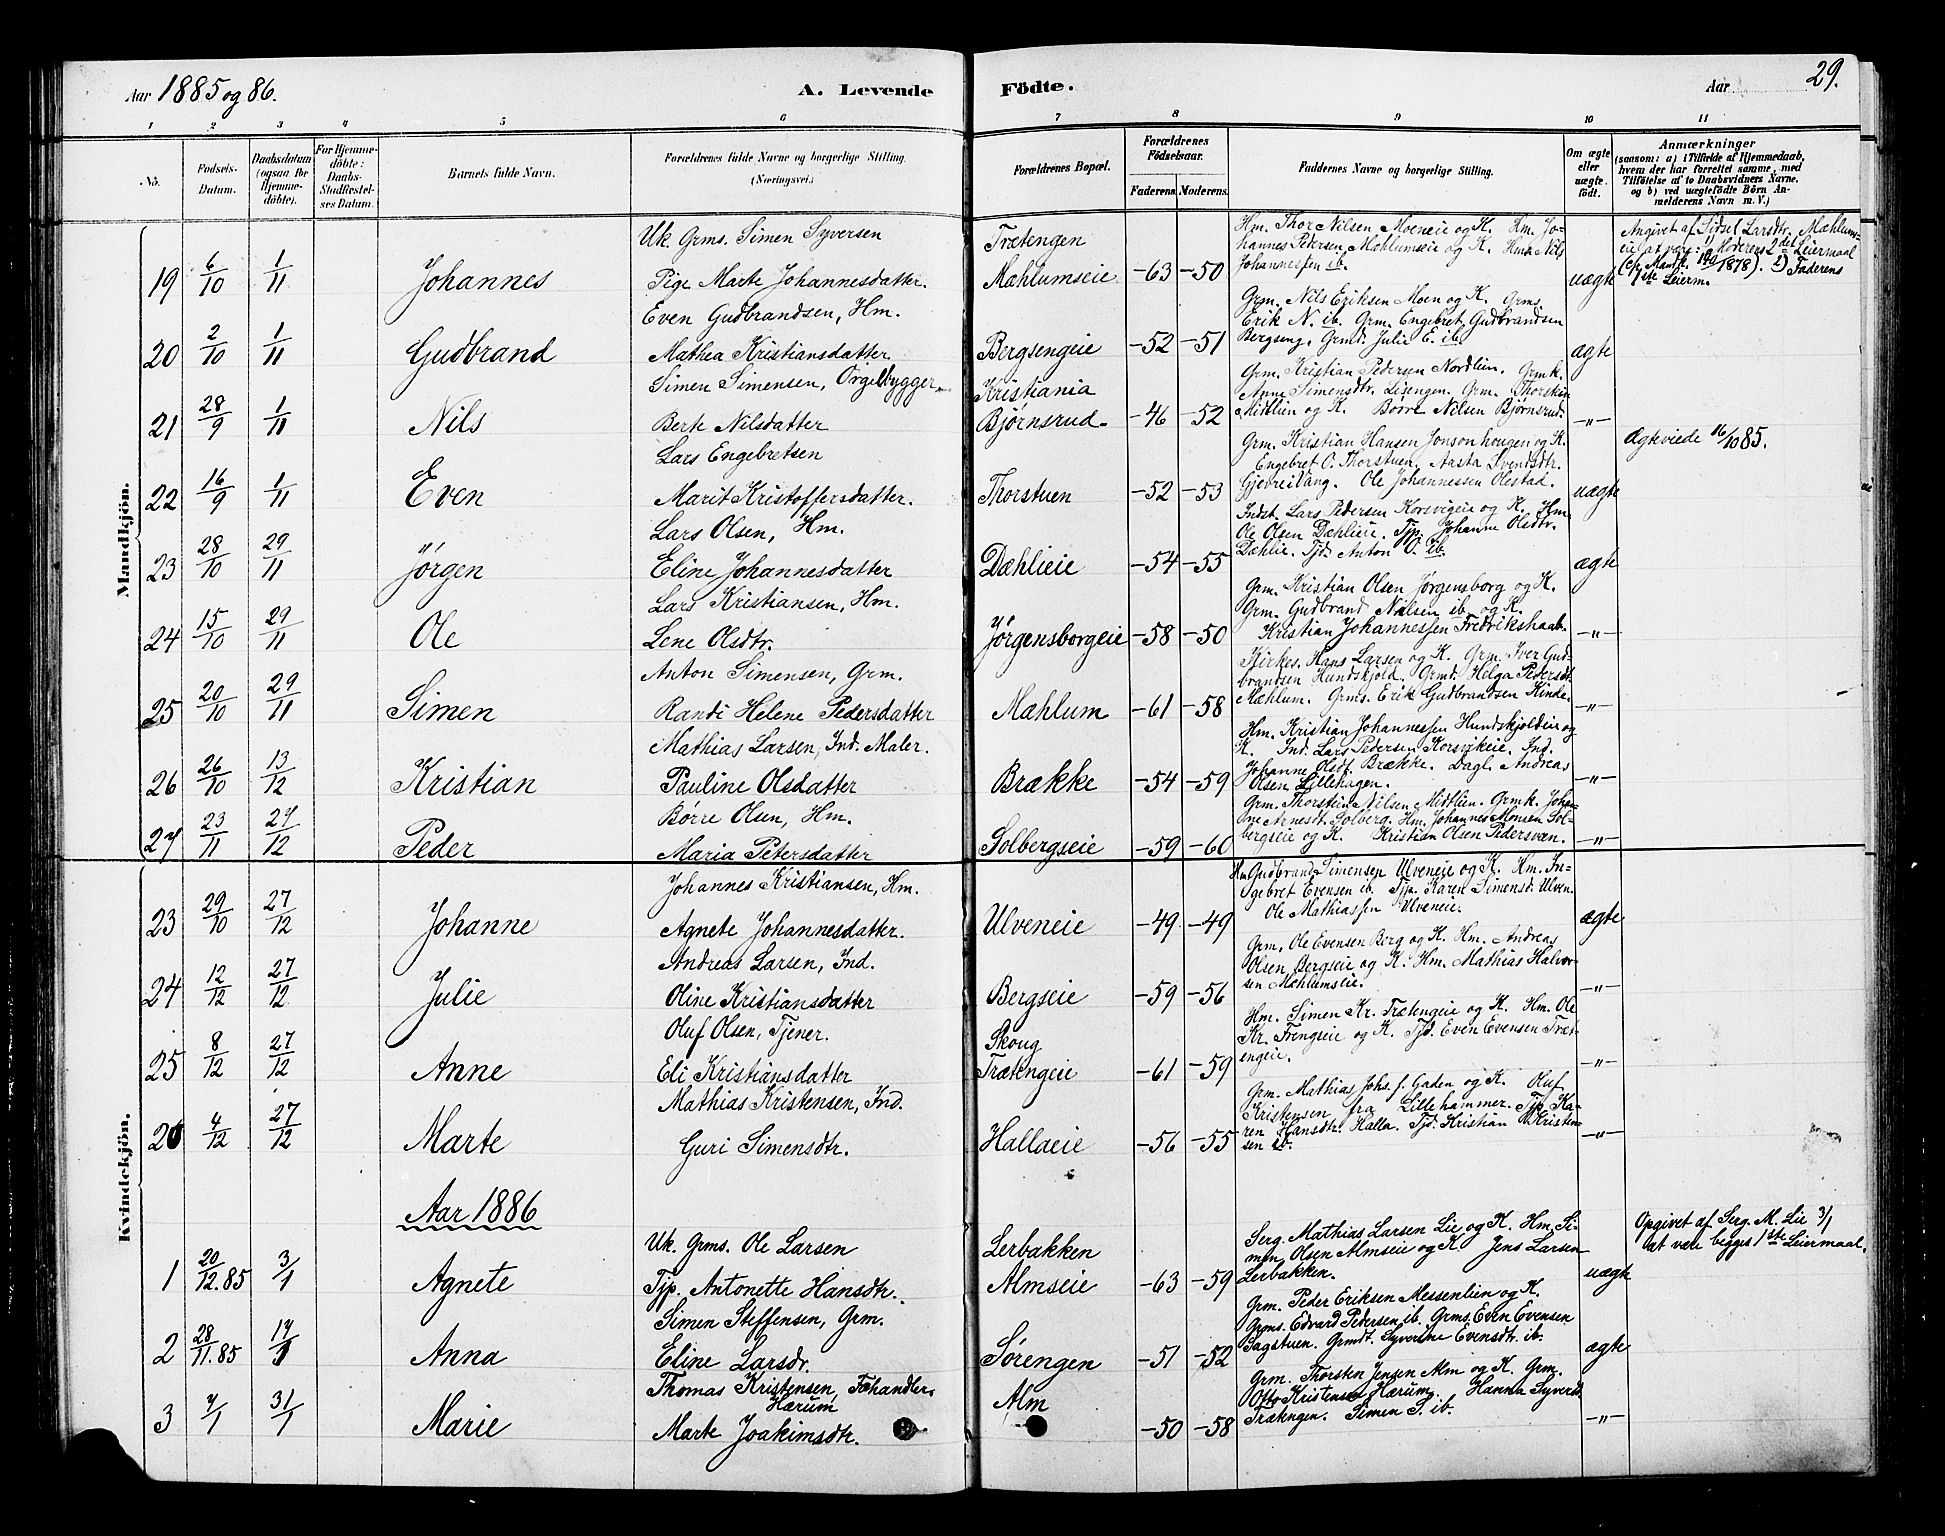 Aar 1885 og 86.
A. Levende Födte.
Aar
29.
1 2 3 4 5 6 7 8 9 10 11
No.
Födsels-Datum.
Daabsdatum (ogsaa for Hjemmedöbte).
For Hjemmedöbte: Daabs-Stadfæstelses Datum.
Barnets fulde Navn.
Forældrenes fulde Navne og borgerlige Stilling. (Næringsvei.)
Forældrenes Bopæl.
Forældrenes Födselsaar.
Faderens. Moderens.
Faddernes Navne og borgerlige Stilling.
Om ægte eller uægte födt.
Anmærkninger
(saasom: a) i Tilfælde af Hjemmedaab, hvem der har forrettet samme, med Tilföielse af to Daabsvidners Navne, og b) ved uægtefödte Börn Anmelderens Navn m. V.)
Mandkjön.
19 6/10 1/11 Johannes Uk. Grms. Simen Syversen Trætengen
Pige Marte Johannesdatter. Mæhlumseie -63 -50 uægte
Hm. Thor Nilsen Moeneie og K. Hm. Johannes Pedersen Mæhlumseie og K. Hms. Nils Johannessen ib.
Angivet af Sidsel Larsdtr. Mæhlumseie at være: 1) Moderens 2det Leiermaal 2) Faderens 1ste Leierm.
20 2/10 1/11 Gudbrand Even Gudbrandsen, Hm.
Mathea Kristiansdatter Bergsengeie -52 -51 ægte
Grm. Nils Eriksen Moen og K. Grms. Erik N. ib. Grm. Engebret Gudbrandsen Bergseng. Grmd. Julie E. ib.
21 28/9 1/11 Nils Simen Simensen, Orgelbygger Kristiania
Berte Nilsdatter Bjørnsrud -46 -52 -"-
Grm. Kristian Pedersen Nordlien. Grmk. Anne Simensdtr. Lisengen. Grm. Thorstein Midtlien og K. Børre Nilsen Bjørnsrud.
22 16/9 1/11 Even Lars Engebretsen
Marit Kristoffersdatter. Thorstuen -52 -53 uægte
Grm. Kristian Hansen Jonsonhougen og K. Engebret O. Thorstuen. Aasta Svendsdtr. Gjævreivang. Ole Johannessen Olestad.
Ægteviede 16/10 85.
23 28/10 29/11 Jørgen Lars Olsen, Hm.
Eline Johannesdatter Dæhlieie -54 -55 ægte
Indst. Lars Pedersen Korsvigeie og K. Hm. Ole Olsen Dæhlieie. Tjp. Johanne Olsdtr. Dæhlie. Tjd. Anton O. ib.
24 15/10 29/11 Ole Lars Kristiansen, Hm.
Lene Olsdtr. Jørgensborgeie -58 -50 -"-
Grm. Kristian Olsen Jørgensborg og K. Grm. Gudbrand Nilsen ib. og K. Kristian Johannessen Fredrikshaab.
25 20/10 29/11 Simen Anton Simensen, Grm.
Randi Helene Pedersdatter Mæhlum -61 -58 -"-
Kirkes. Hans Larsen og K. Grm. Iver Gudbrandsen Hundskjold. Grmd. Helga Pedersdt. Mæhlum. Grms. Erik Gudbrandsen Kinde.
26 26/10 13/12 Kristian Mathias Larsen, Ind. Maler.
Pauline Olsdatter Brække -54 -59 -"-
Hm. Kristian Johannessen Hundskjoldeie og K. Ind. Lars Pedersen Korsvikeie. Ind. Johanne Olsdt. Brække. Dagl. Andreas Olsen Lillehagen.
27 23/11 27/12 Peder Børre Olsen, Hm.
Maria Petersdatter Solbergseie -59 -60 -"-
Grm. Thorstein Nilsen Midtlien. Grmk. Johanne Arnesdt. Solberg. Hm. Johannes Monsen Solbergseie og K. Kristian Olsen Pedersvæn.
Kvindekjön.
23 29/10 27/12 Johanne Johannes Kristiansen, Hm.
Agnete Johannesdatter. Ulveneie -49 -49 ægte
Hm Gudbrand Simensen Ulveneie og K. Hm. Ingebret Evensen ib. Tjp. Karen Simensd. Ulven. Ole Mathiassen Ulveneie.
24 12/12 27/12 Julie Andreas Larsen, Ind.
Oline Kristiansdatter Bergseie -59 -56 -"-
Grm. Ole Evensen Berg og K. Hm. Andreas Olsen Bergseie og K. Hm. Mathias Halvorsen Mæhlumseie.
25 8/12 27/12 Anne Oluf Olsen, Tjener. Skoug
Eli Kristiansdatter Trætengeie -61 -59 -"-
Hm. Simen Kr. Trætengeie og K. Hm. Ole Kr. Frengseie og K. Tjd. Even Evensen Trætengeie.
26 4/12 27/12 Marte Mathias Kristensen, Ind.
Guri Simensdtr. Hallaeie -56 -55 -"-
Grm. Mathias Johs. f. Gaden og K. Oluf Kristensen fra Lillehammer. Tjp. Karen Hansdtr. Halla. Tjd. Kristian Kristensen ib.
Aar 1886
1 20/12.85 3/1 Agnete Uk. Grms. Ole Larsen Lerbakken
Tjp. Antonette Hansdtr. Almseie -63 -59 uægte
Serg. Mathias Larsen Lie og K. Hm. Simen Olsen Almseie og K. Jens Larsen Lerbakken.
Opgivet af Serg. M. Lie 3/1 at være begges 1ste Leiermaal.
2 28/11.85 17/1 Anna Simen Steffensen, Grm.
Eline Larsdr. Sørengen -51 -52 ægte
Grm. Peder Eriksen Messenlien og K. Grms. Edvard Pedersen ib. Grms. Even Evensen Sagstuen. Grmdt. Syverine Evensdtr. ib.
3 7/1 31/1 Marie Thomas Kristensen, Fæhandler, Hærum Alm
Marte Joakimsdtr. -50 -58 -"-
Grm. Thorsten Jensen Alm og K. Grm. Otto Kristensen Hærum. Hanna Syversd Trætengen. Simen S. ib.